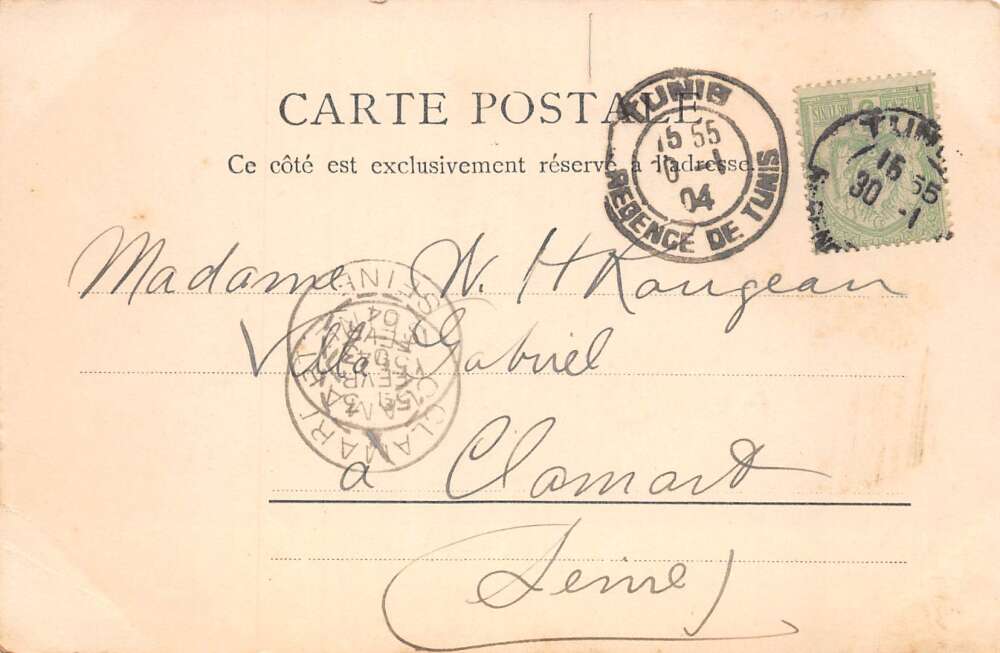 CARTE POSTALE
Ce côté est exclusivement réservé à l'adresse.
TUNIS
15 55
-1
04
REGENCE DE TUNIS
TUNIS
15 55
30 -1
Madame W. H Rougeau
Villa Gabriel
à Clamart
(Seine)
CLAMART
SEINE
FEVR
04